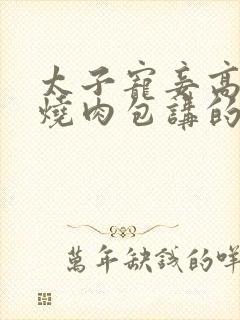 太子寵妾高
燒肉包講的
萬年缺錢的咩